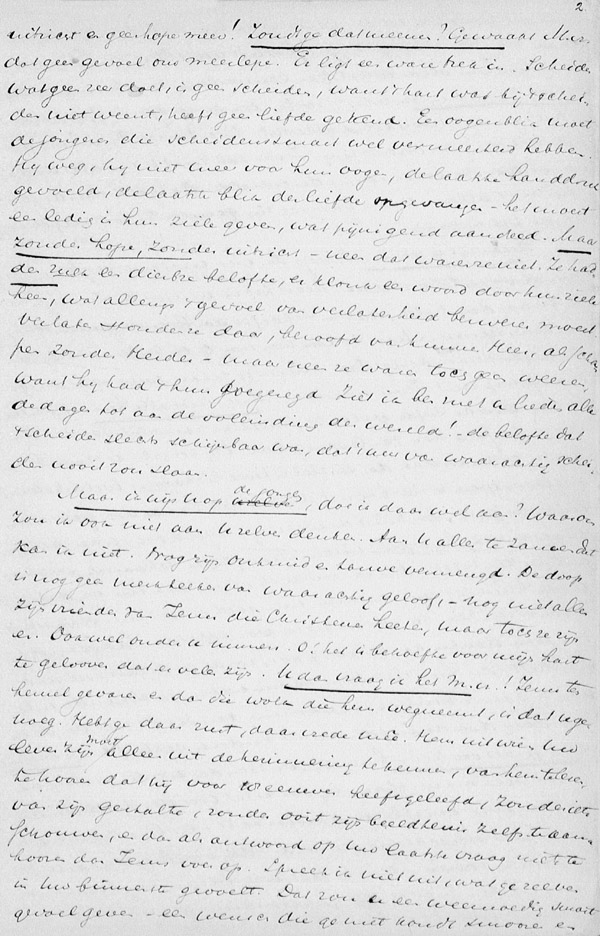 2
uitzicst en geen hope meer! Zoudt ge dat meenen? Gewaags M.z.
dat geen gevoel ons meerlepe. Er ligt een ware trek in. Scheiden
wat geen zee doet, is geen scheiden, want 't hart was bij 't schei-
den niet weent, heeft geen liefde gekend. Een oogenblik moet
de jongeren die scheidenssmart wel vermeesterd hebben.
Hy weg, hy niet meer voor hun oogen, de laatste handdruk
gevoeld, de laatste blik der liefde opgevangen – het moest
een ledig in hun ziele geven, wat pijnigend aandeed. Maar
zonder hope, zonder uitzicst – neen dat waren ze niet. Ze had-
den een dierbre belofte, er klonk een woord door hun ziele
heen, wat allengs 't gevoel van verlatenheid benemen moest.
Verlaten stonden ze daar, beroofd van hunnen Heer, als scha-
pen zonder Herder – maar neen ze waren tocs geen weezen,
want hy had 't hun toegezegd Ziet ik ben met u lieden alle
de dagen tot aan de volleinding der wereld! – de belofte dat
't scheiden slechts schijnbaar was, dat 't uur van waarachtig schei-
den nooit zou slaan.
Maar ik wijs u op de jongeren, doe ik daar wel aan? Waarom
zou ik ook niet aan uzelven denken. Aan u allen te zamen dat
kan ik niet. Nog zijn onkruid en tarwe vermengd. De doop
is nog geen merkteeken van waarachtig geloof, – nog niet allen
zijn vrienden van Jezus die Christenen heeten, maar tocs ze zijn
er. Ook wel onder u immers. O! het is behoefte voor mijn hart
te gelooven dat er velen zijn. U dan vraag ik het M.z.! Jezus ten
hemel gevaren en dan die wolk die hem wegneemt, is dat u ge-
noeg. Hebt ge daar rust, daar vrede mêe. Hem uit wien uw
leven zijn moet alleen uit de herinnering te kennen, van hem te lezen,
te hooren dat hij voor 18 eeuwen heeft geleefd, zonder iets
van zijn gestalte, zonder ooit zijn beeldtenis zelfs te aan-
schouwen, en dan als antwoord op uw laatste vraag niet te
hooren dan Jezus voer op. Spreek ik niet uit, wat ge zelven
in uw binnenste gevoelt. Dat zou u een weemoedig smart-
gevoel geven – een wensch die ge niet kondt smooren en